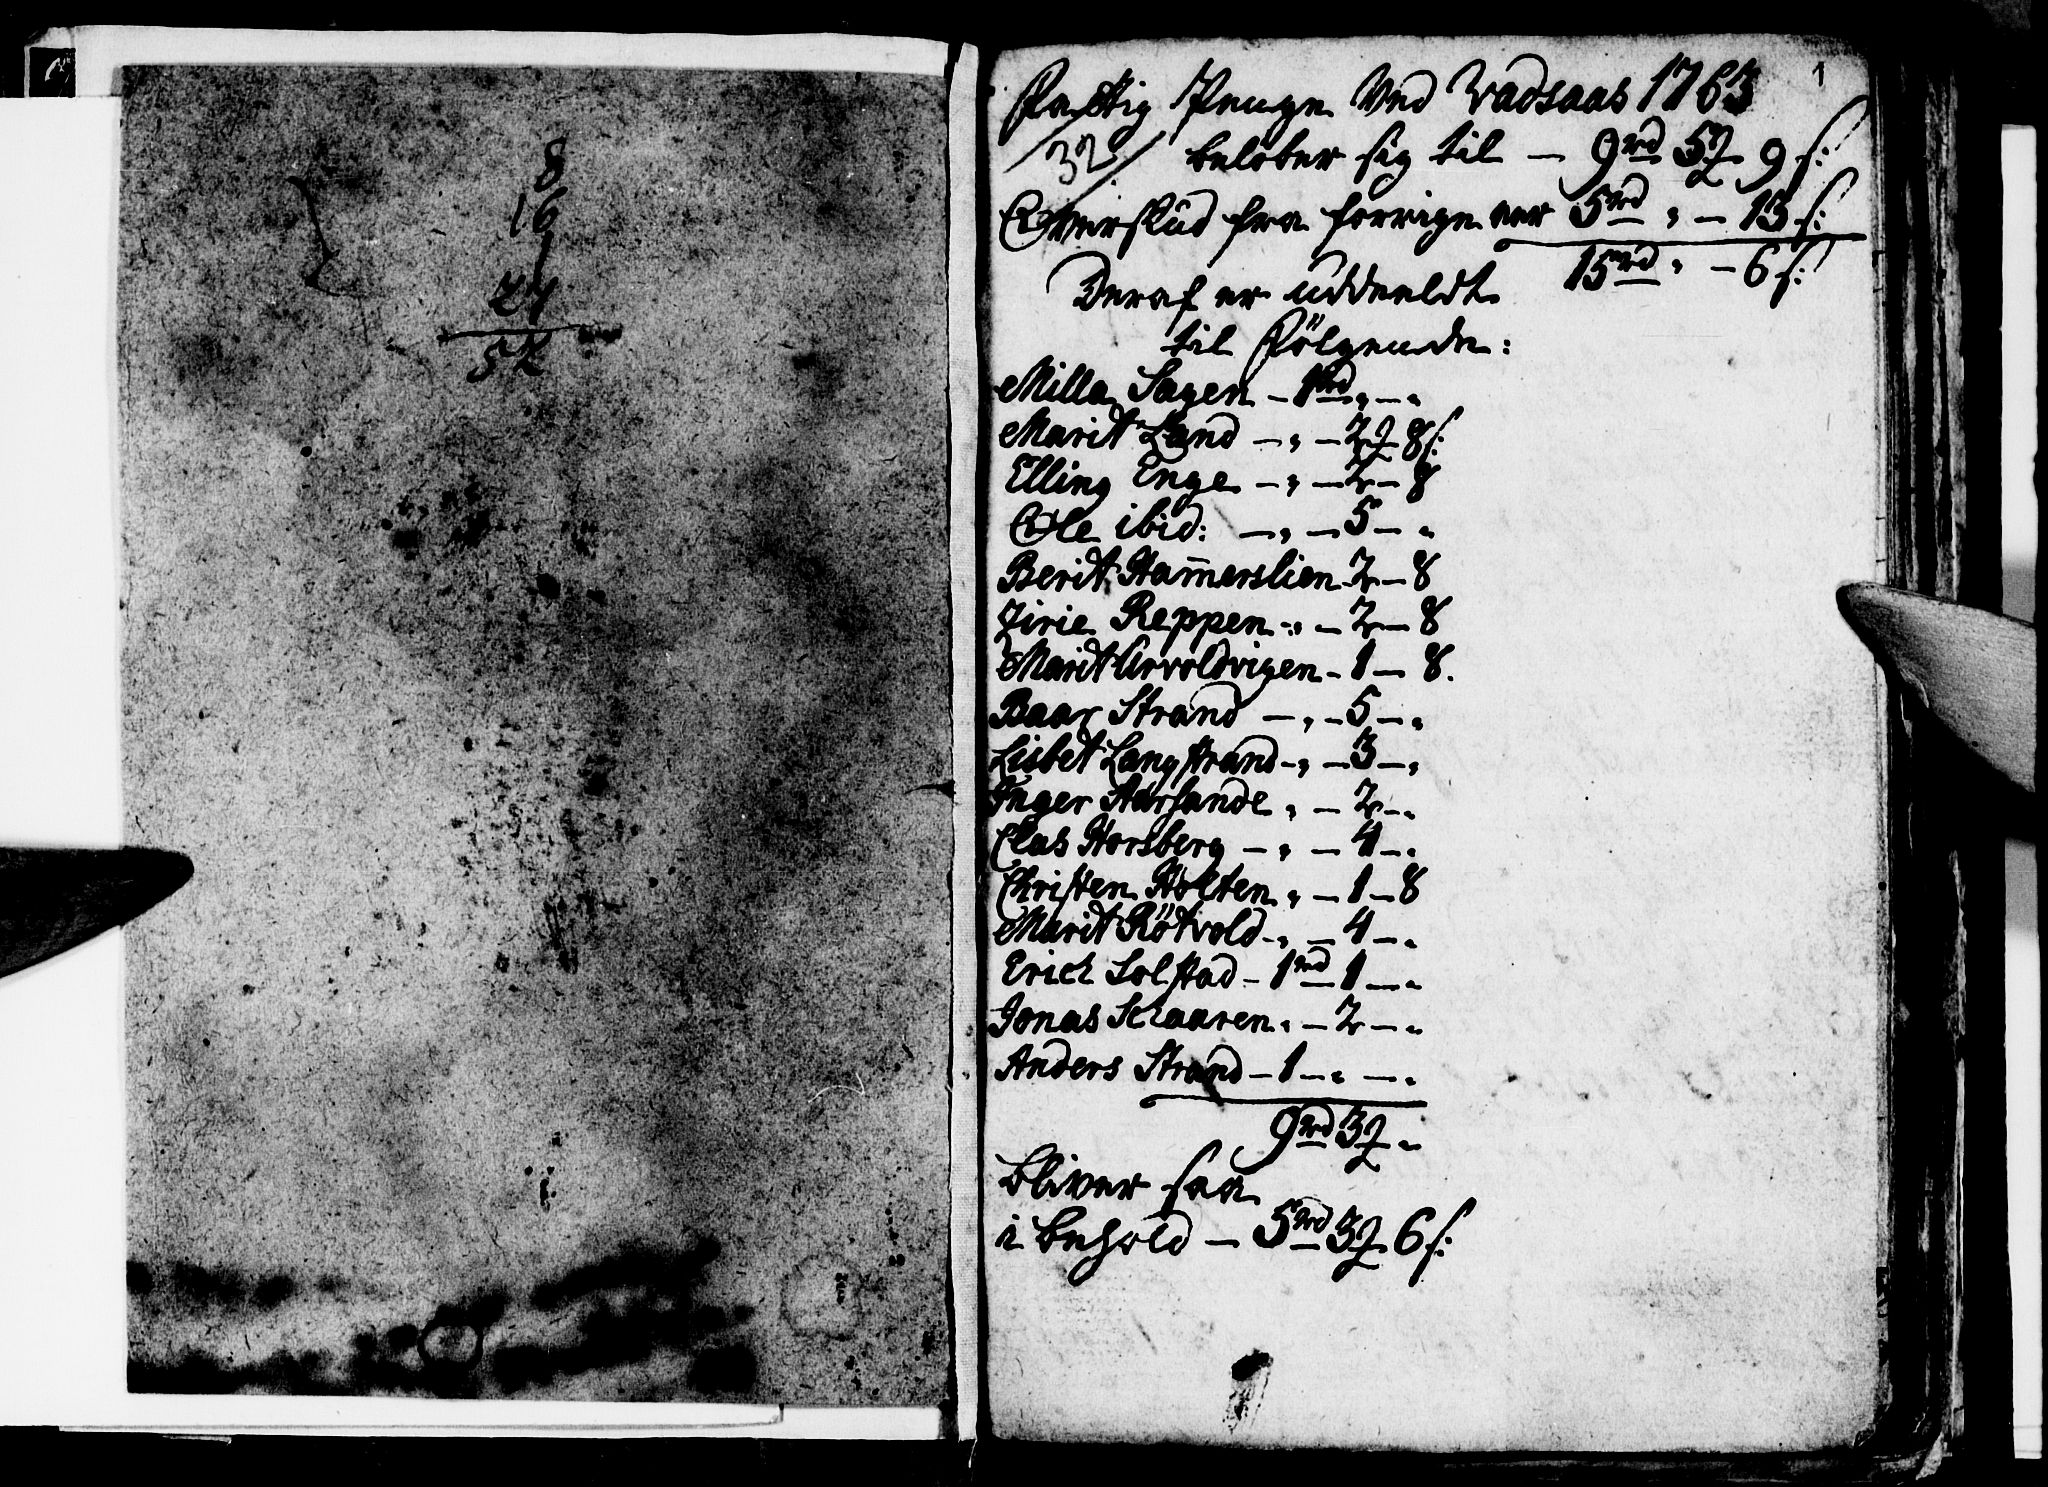 8
16
1
27
52
1
Fattig Penge Ved Vadsaas 1763
32
beløber sig til — 9rd 5 9 s:
Overskud fra forrige aar 5rd „ — 13 s:
15rd „ — 6 s:
Deraf er uddeeldt
til Fölgende:
Milla Sagen — 1rd „ — „
Marit Land — „ — 2 8 s:
Elling Enge — „ — 2 — 8
Ole ibid: — „ — 5 — „
Berit Ham̄erslien 2 — 8
Zirie Reppen „ — 2 — 8
Marit Arvoldvigen — 1 — 8.
Baar Strand — „ — 5 — „
Lisbet Langstrand — „ — 3 — „
Inger Aarsande „ — 2 — „
Clas Horsberg — „ — 4 — „
Christen Holten „ — 1 — 8
Marit Rötvold — „ — 4 — „
Erich Solstad — 1rd 1 — „
Jonas Schaaren „ — 2 — „
Anders Strand — 1 — „ — „
9rd 3 „
bliver saa
i behold — 5rd 3 6 s: